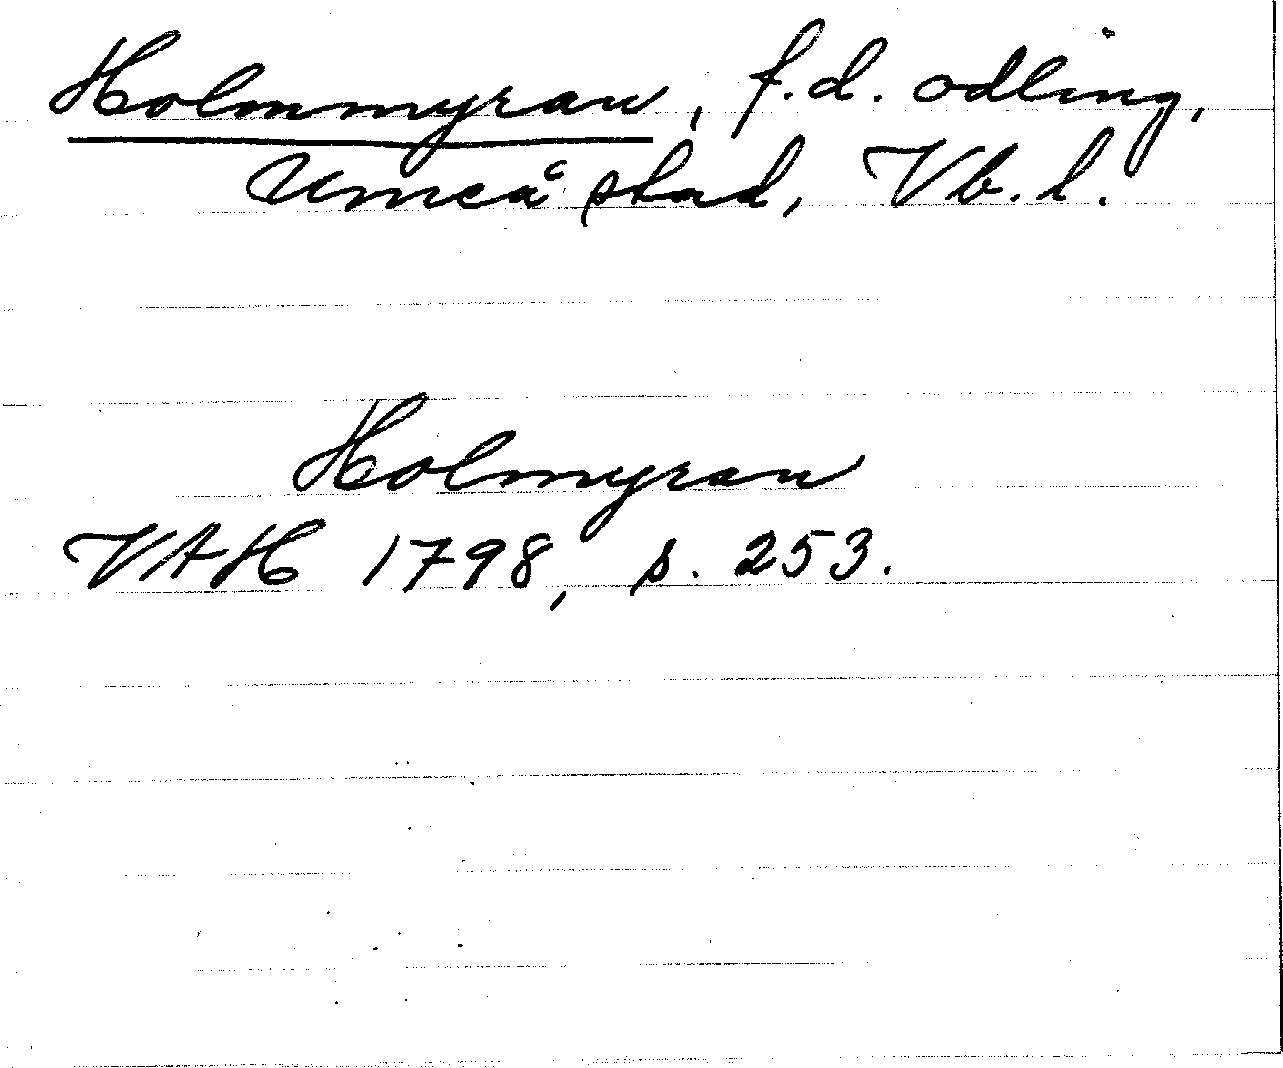 Holmmyran, f.d. odling,
Umeå stad, Vb. l.
Holmyran
VAH 1798, s. 253.